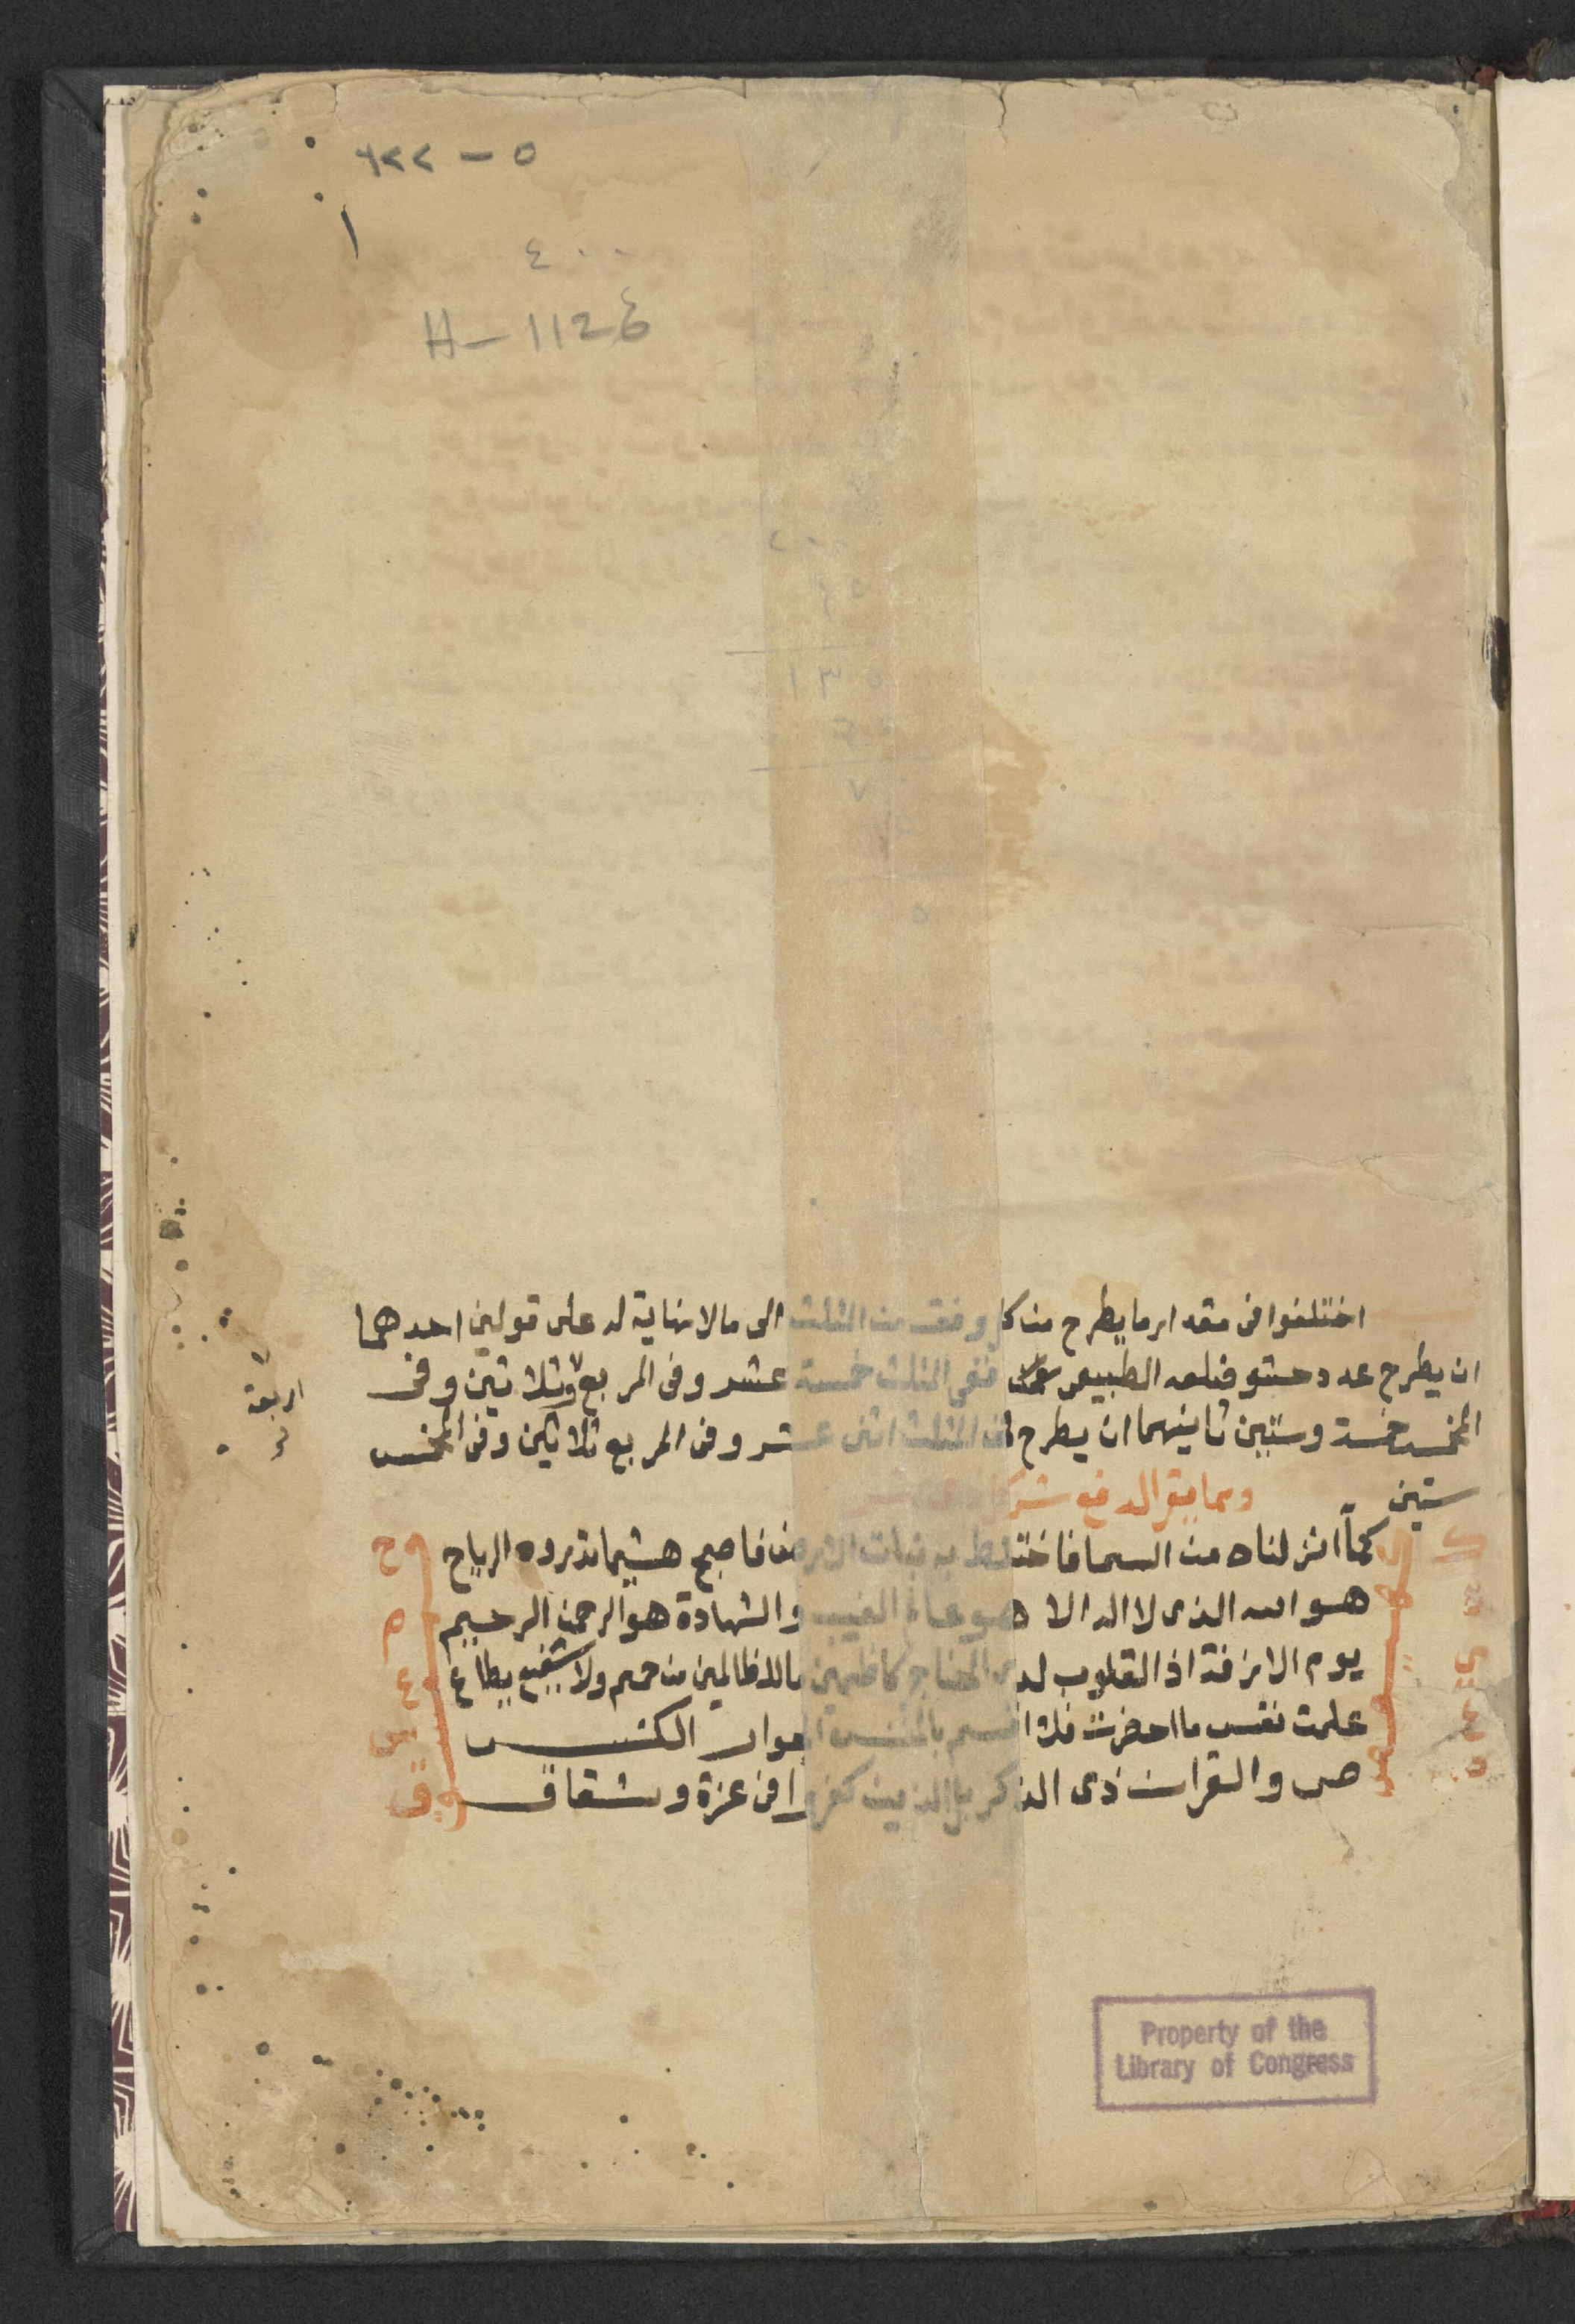 ٦٢٢ - ٥
١
٤٠٠
H - 1124
١٣٥
٧
اختلفوا فى مقدار ما يطرح من كل وفق من المثلث الى مالا نهاية له على قولين احدهما
ان يطرح عدد حشو ضلعه الطبيعى ففى المثلث خمسة عشر وفى المربع وثلاثين وفى
اربعة
المخمس خمسة وستين ثانيهما ان يطرح فى المثلث اثنى عشر وفى المربع ثلاثين وفى المخمس
ستين
ومما يقرا لدفع شر
كمآ انزلناه من السما فاختلط به نبات الارض فاصبح هشيما تذروه الرياح
هو الله الذى لا اله الا هو عالم الغيب والشهادة هو الرحمن الرحيم
يوم الازفة اذ القلوب لدى الحناجر كاظمين ما للظالمين من حميم ولا شفيع يطاع
علمت نفس ما احضرت فلا اقسم بالخنس الجوار الكنس
ص والقران ذى الذكر بل الذين كفروا فى عزة وشقاق
ح
م
ع
س
ق
ك
ه
ى
ع
ص
Property of the
Library of Congress